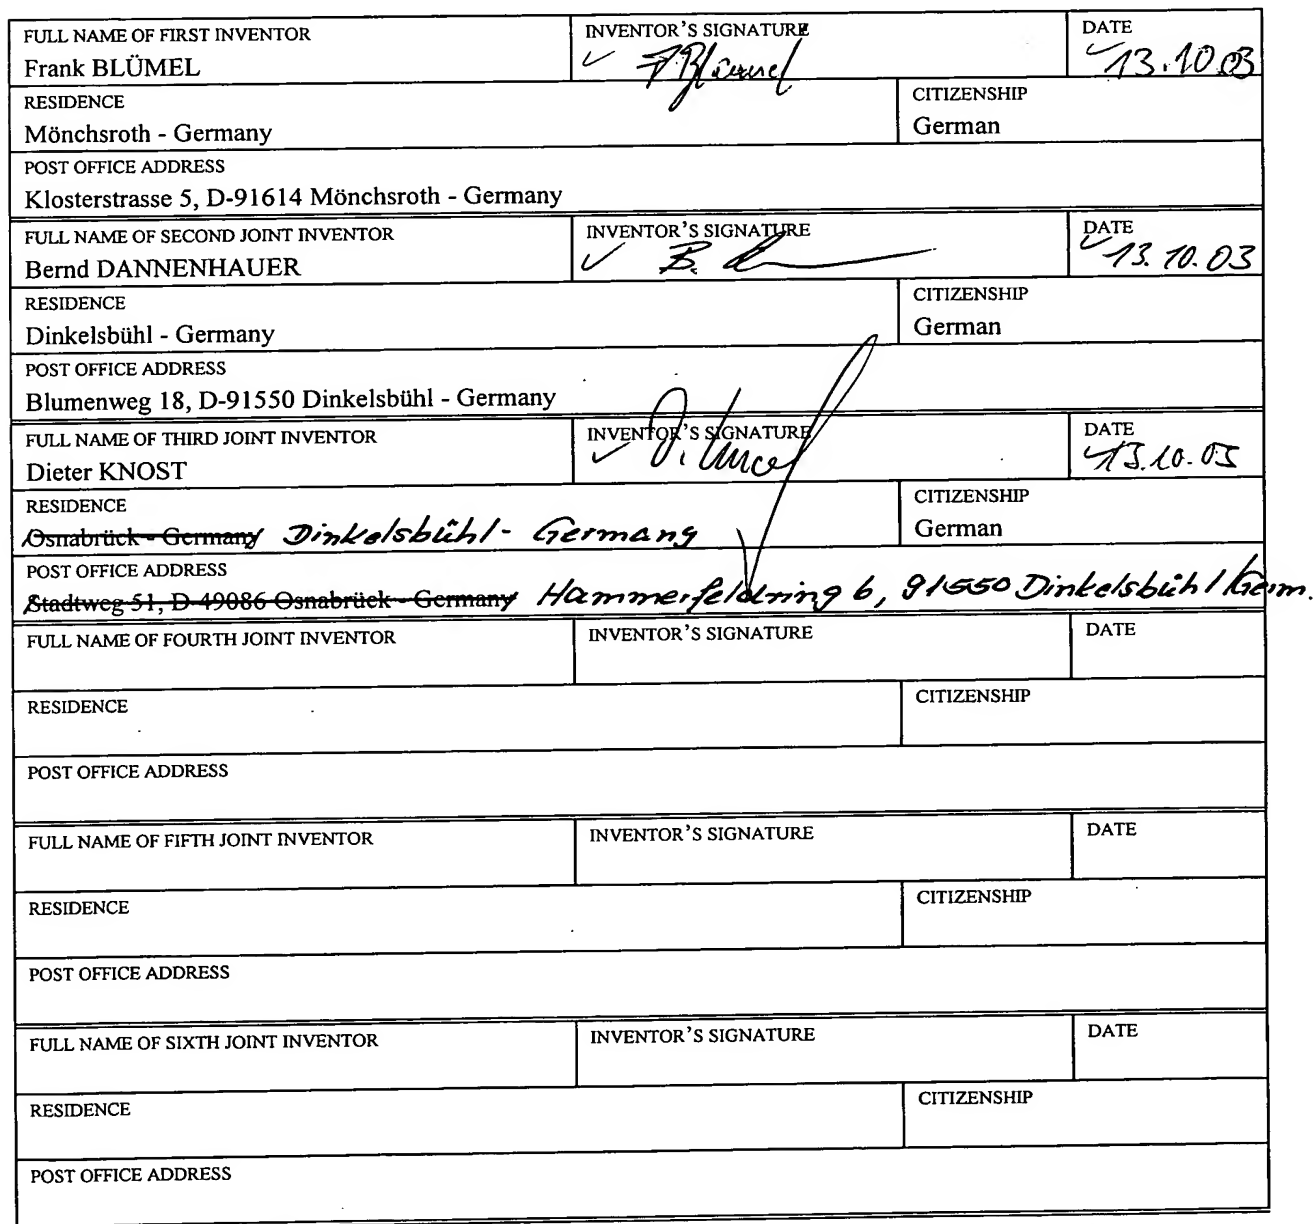 FULL NAME OF FIRST INVENTOR INVENTOR'S SIGNATURE DATE
Frank BLÜMEL ✓ F. Blümel ✓13.10.03
RESIDENCE CITIZENSHIP
Mönchsroth - Germany German
POST OFFICE ADDRESS
Klosterstrasse 5, D-91614 Mönchsroth - Germany
FULL NAME OF SECOND JOINT INVENTOR INVENTOR'S SIGNATURE DATE
Bernd DANNENHAUER ✓ B. ✓13.10.03
RESIDENCE CITIZENSHIP
Dinkelsbühl - Germany German
POST OFFICE ADDRESS
Blumenweg 18, D-91550 Dinkelsbühl - Germany
FULL NAME OF THIRD JOINT INVENTOR INVENTOR'S SIGNATURE DATE
Dieter KNOST ✓ D. ✓13.10.03
RESIDENCE CITIZENSHIP
Osnabrück - Germany Dinkelsbühl - Germany German
POST OFFICE ADDRESS
Stadtweg 51, D-49086 Osnabrück - Germany Hammerfeldring 6, 91550 Dinkelsbühl/Germ.
FULL NAME OF FOURTH JOINT INVENTOR INVENTOR'S SIGNATURE DATE
RESIDENCE CITIZENSHIP
POST OFFICE ADDRESS
FULL NAME OF FIFTH JOINT INVENTOR INVENTOR'S SIGNATURE DATE
RESIDENCE CITIZENSHIP
POST OFFICE ADDRESS
FULL NAME OF SIXTH JOINT INVENTOR INVENTOR'S SIGNATURE DATE
RESIDENCE CITIZENSHIP
POST OFFICE ADDRESS